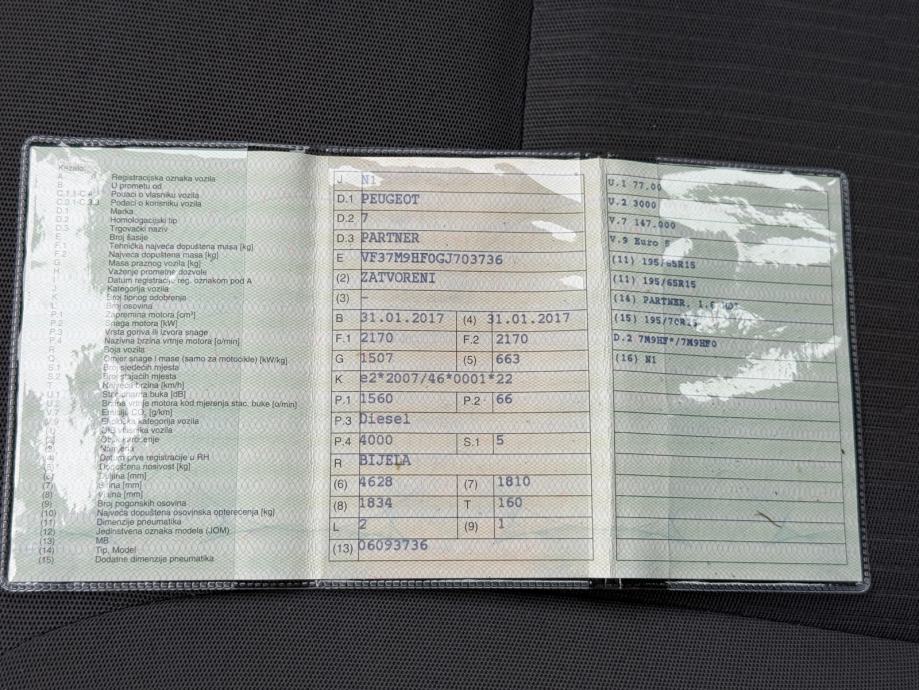 Kazalo:
A Registracijska oznaka vozila
B U prometu od
Podaci o vlasniku vozila
Podaci o korisniku vozila
D.1 Marka
D.2 Homologacijski tip
D.3 Trgovački naziv
E Broj šasije
F.1 Tehnička najveća dopuštena masa [kg]
F.2 Najveća dopuštena masa [kg]
G Masa praznog vozila [kg]
Važenje prometne dozvole
Datum registracije reg. oznakom pod A
Kategorija vozila
Broj tipnog odobrenja
Broj osovina
P.1 Zapremina motora [cm³]
P.2 Snaga motora [kW]
P.3 Vrsta goriva ili izvora snage
P.4 Nazivna brzina vrtnje motora [o/min]
R Boja vozila
Q Omjer snage i mase (samo za motocikle) [kW/kg]
S.1 Broj sjedećih mjesta
S.2 Broj stajaćih mjesta
T Najveća brzina [km/h]
U.1 buka [dB]
U.2 Brzina vrtnje motora kod mjerenja stac. buke [o/min]
CO₂ [g/km]
kategorija vozila
vozila
Datum prve registracije u RH
Dopuštena nosivost [kg]
(6) [mm]
(7) [mm]
(8) [mm]
(9) Broj pogonskih osovina
(10) Najveća dopuštena osovinska opterećenja [kg]
(11) Dimenzije pneumatika
(12) Jedinstvena oznaka modela (JOM)
(13) MB
(14) Tip, Model
(15) Dodatne dimenzije pneumatika
J N1
D.1 PEUGEOT
D.2 7
D.3 PARTNER
E VF37M9HF0GJ703736
(2) ZATVORENI
(3) -
B 31.01.2017 (4) 31.01.2017
F.1 2170 F.2 2170
G 1507 (5) 663
K e2*2007/46*0001*22
P.1 1560 P.2 66
P.3 Diesel
P.4 4000 S.1 5
R BIJELA
(6) 4628 (7) 1810
(8) 1834 T 160
L 2 (9) 1
(13) 06093736
U.1 77.00
U.2 3000
V.7 147.000
V.9 Euro
(11) 195/65R15
(11) 195/65R15
(14) PARTNER, 1.6
(15) 195/70R15
D.2 7M9HF*/7M9HF0
(16) N1